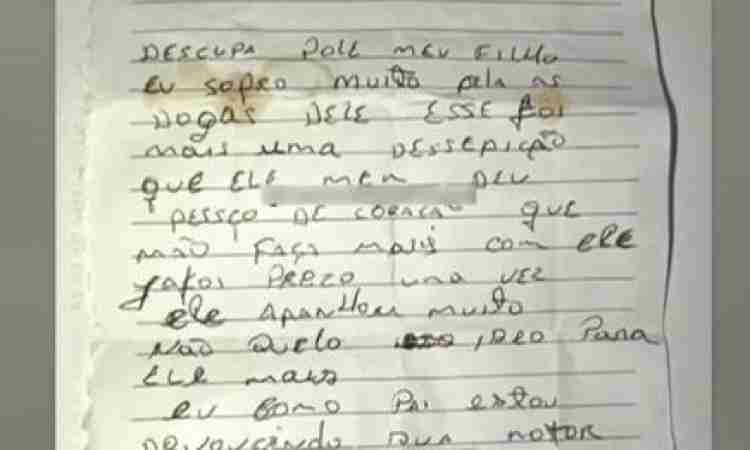 DESCUPA POLE MEU FILHO
EU SOFRO MUITO PELA AS
DOGAS DELE ESSE FOI
MAIS UMA DESSEPICÃO
QUE ELE MEM DEU
"PESSÇO DE CORACÃO" QUE
NÃO FAÇA MAIS COM ELE
JAFOI PREZO UNA VEZ
ELE APANHOU MUITO
NÃO QUELO PARA
ELE MAIS
EU COMO PAI ESTOU
DEVOUCINDO SUA MOTOR